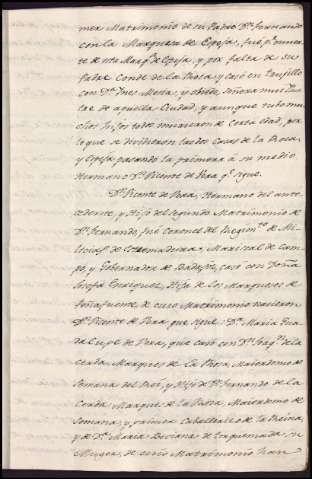 mer Matrimonio de su Padre Dn. Fernando
con la Marquesa de Espeja, fué pr. muerte
de esta Marqsa. de Espeja, y por falta de su
Padre Conde de la Roca, y casó en Truxillo
con Dª. Ines Mexia, y Obido, Señora mui Ilus
tre de aquella Ciudad, y aunque tubo mu
chos hijos todos murieron de corta edad, por
lo que se dividieron las dos Casas de la Roca,
y Espeja pasando la primera á su medio
Hermano Dn. Vicente de Vera qe. sigue.
Dn. Vicente de Vera, Hermano del ante
cedente, y Hijo del segundo Matrimonio de
Dn. Fernando, fué Coronel del Regimto. de Mi
licias de Extremadura, Mariscal de Cam
po, y Gobernador de Badajoz, caso con Doña
Josefa Enriquez, Hija de los Marqueses de
Peñafuente, de cuio Matrimonio nacieron
Dn. Vicente de Vera, que sigue: Dª. Maria Gua
dalupe de Vera, que casó con Dn. Joaqn. de la
Cerda, Marques de la Rosa, Maiordomo de
Semana del Rei, y Hijo de Dn. Fernando de la
Cerda, Marques de la Rosa, Maiordomo de
Semana, y primer Caballerizo de la Reina,
y de Dª. Maria de Torquemada, su
Muger, de cuio Matrimonio han